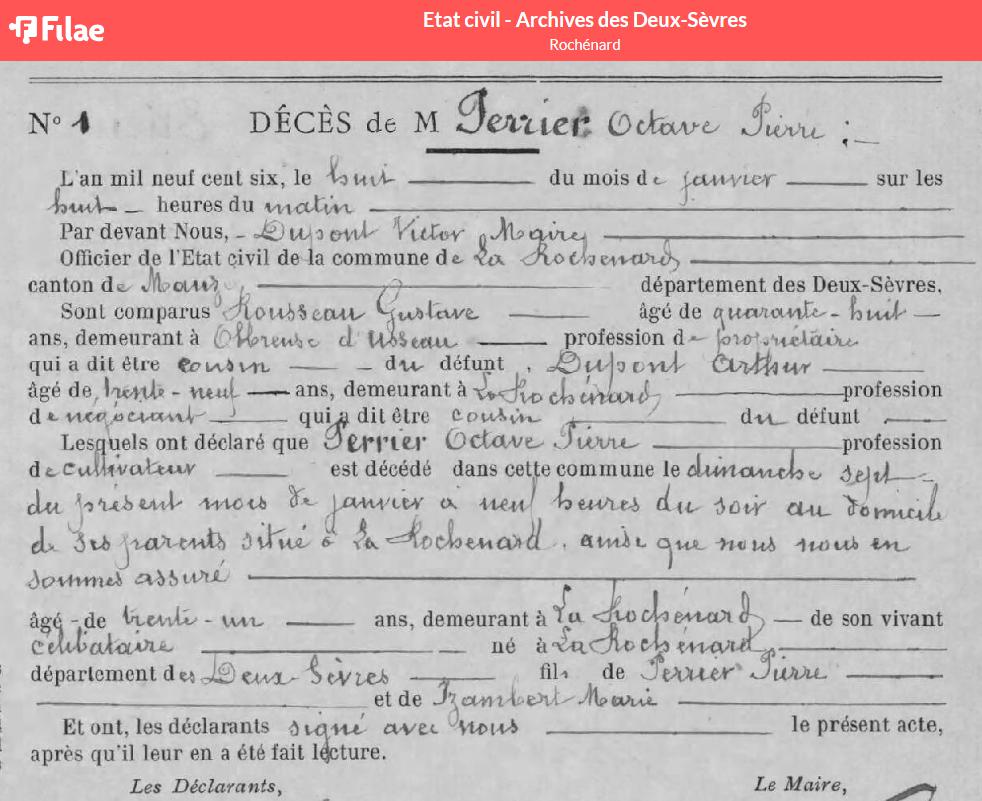 Filae
Etat civil - Archives des Deux-Sèvres
Rochénard
N° 1 DÉCÈS de M Perrier Octave Pierre ;
L'an mil neuf cent six, le huit du mois de janvier sur les
huit heures du matin
Par devant Nous, Dupont Victor Maire,
Officier de l'Etat civil de la commune de La Rochénard
canton de Mauzé, département des Deux-Sèvres.
Sont comparus Rousseau Gustave âgé de quarante-huit
ans, demeurant à d'Usseau profession de propriétaire
qui a dit être cousin du défunt, Dupont Arthur
âgé de trente-neuf ans, demeurant à La Rochénard, profession
de négociant qui a dit être cousin du défunt
Lesquels ont déclaré que Perrier Octave Pierre profession
de cultivateur est décédé dans cette commune le dimanche sept
du présent mois de janvier à neuf heures du soir au domicile
de ses parents situé à La Rochenard, ainsi que nous nous en
sommes assuré
âgé de trente-un ans, demeurant à La Rochénard de son vivant
célibataire né à La Rochénard,
département des Deux-Sèvres fils de Perrier Pierre
et de Izambert Marie
Et ont, les déclarants signé avec nous le présent acte,
après qu'il leur en a été fait lecture.
Les Déclarants, Le Maire,